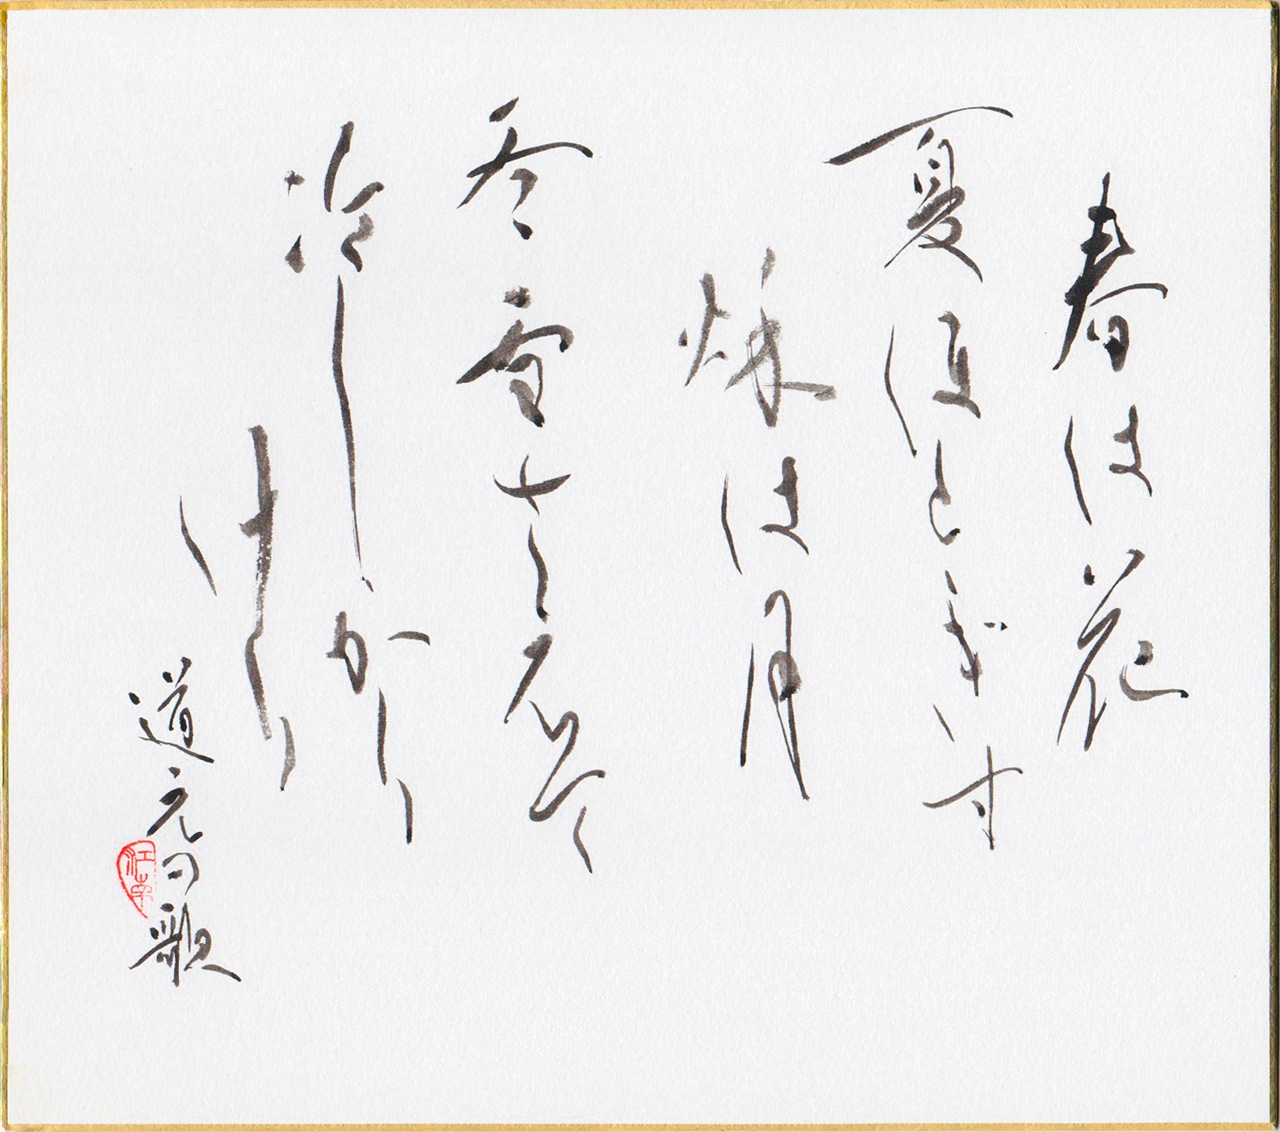 春は花
夏ほとゝぎす
秌は月
冬雪さえて
冷しかり
けり
道元の歌